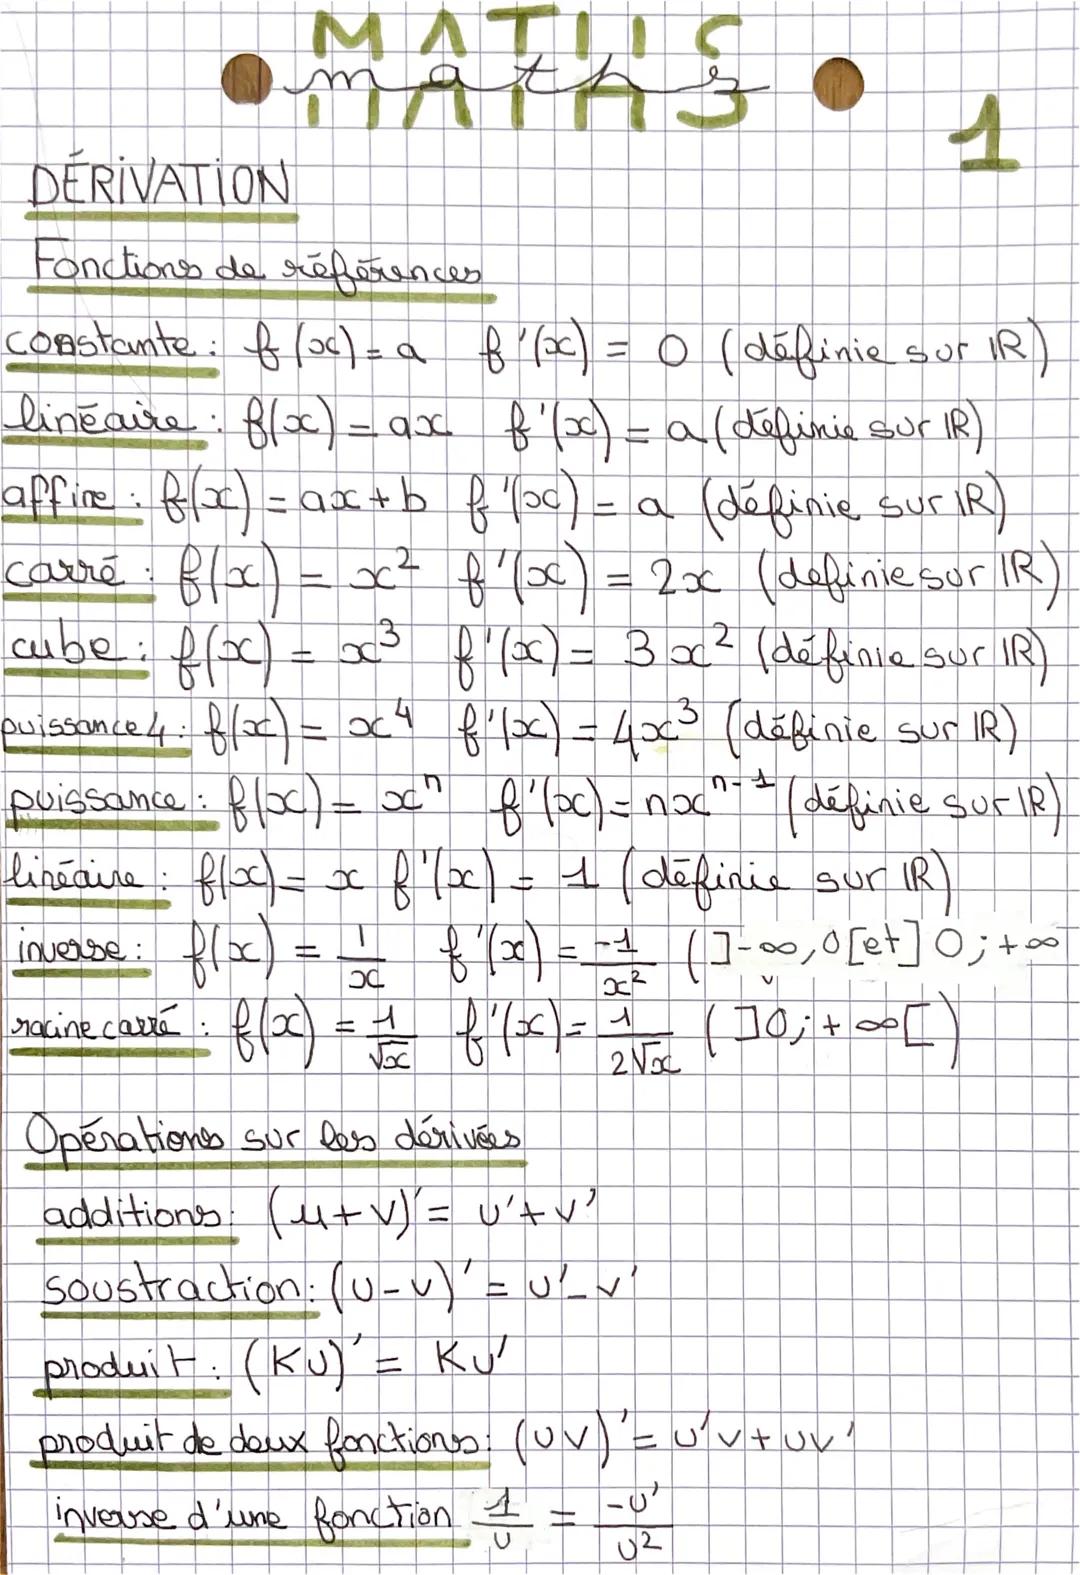 MATHS
maths
1
DÉRIVATION
Fonctions de références
constante : f(x) = a f'(x) = 0 (définie sur IR)
linéaire : f(x) = ax f'(x) = a (définie sur IR)
affine : f(x) = ax + b f'(x) = a (définie sur IR)
carré : f(x) = x² f'(x) = 2x (definie sur IR)
cube : f(x) = x³ f'(x) = 3x² (définie sur IR)
puissance 4 : f(x) = x⁴ f'(x) = 4x³ (définie sur IR)
puissance : f(x) = xⁿ f'(x) = nxⁿ⁻¹ (définie sur IR)
linéaire : f(x) = x f'(x) = 1 (définie sur IR)
inverse : f(x) = 1/x f'(x) = -1/x² (]-∞, 0[et]0; +∞
racine carré : f(x) = 1/√x f'(x) = 1/2√x (]0; +∞[)
Opérations sur les dérivées
additions : (u+v)' = u'+v'
soustraction : (u-v)' = u'-v'
produit : (Ku)' = Ku'
produit de deux fonctions : (uv)' = u'v + uv'
inverse d'une fonction 1/u = -u'/u²